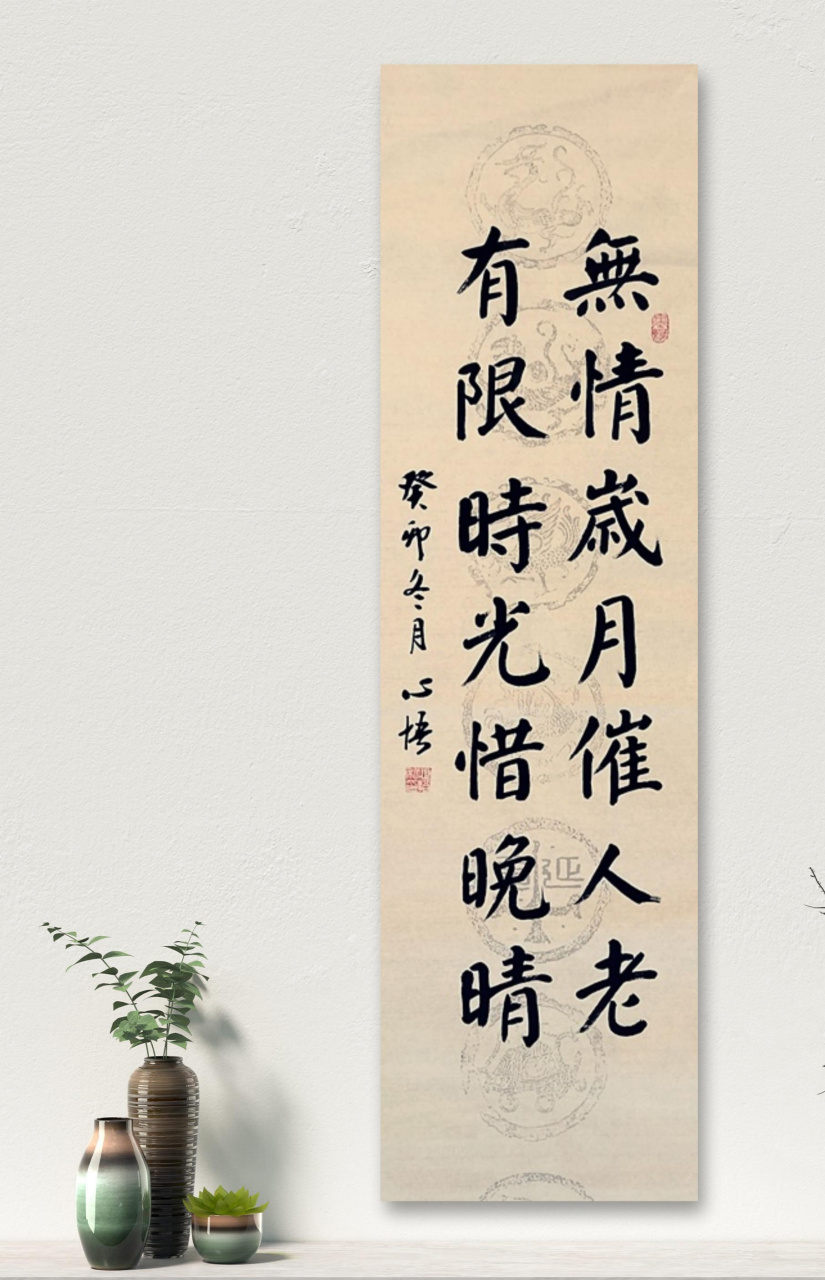 無情歲月催人老
有限時光惜晚晴
癸卯冬月 心悟